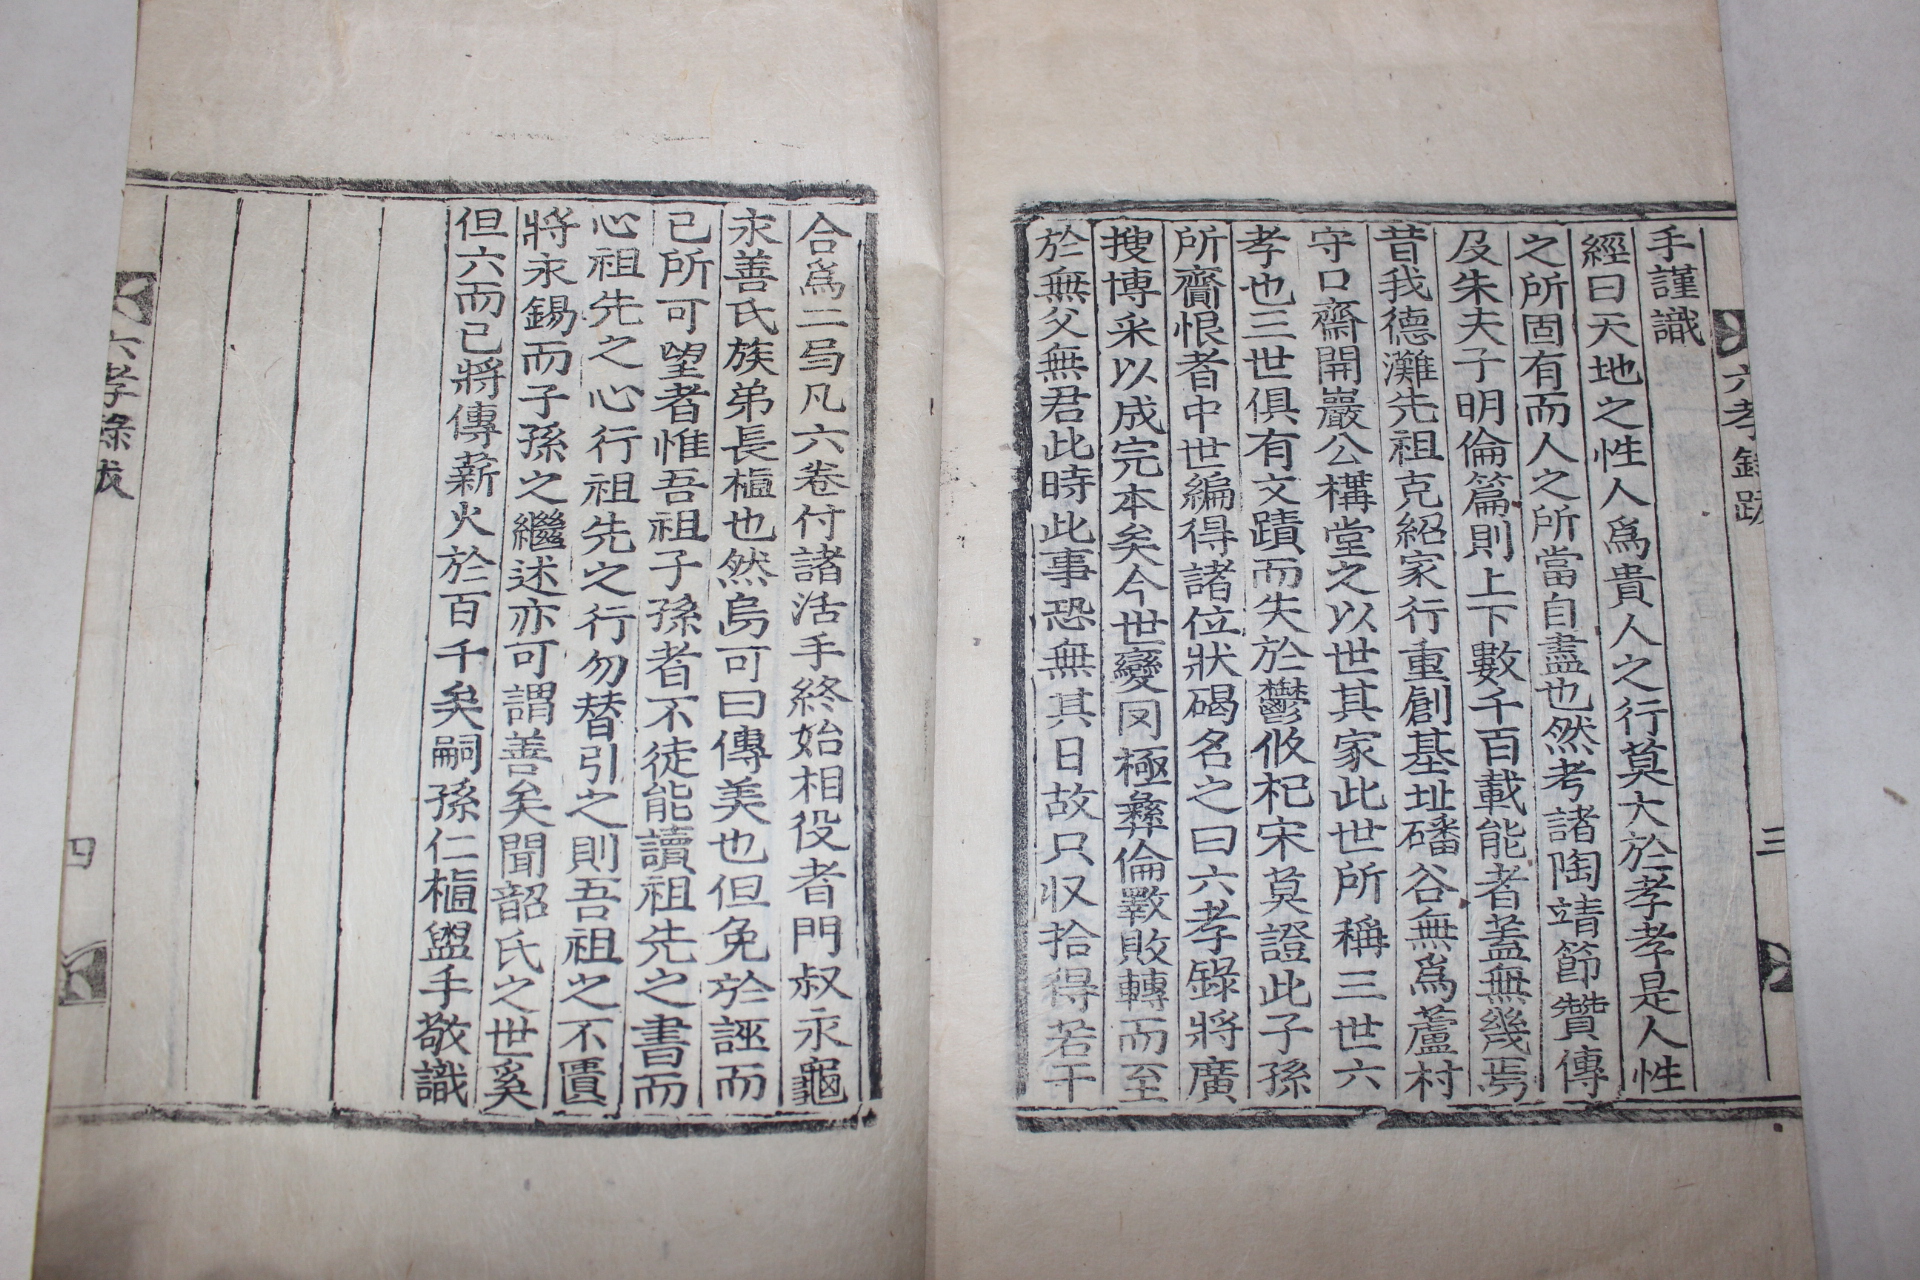 六孝錄跋
三
手謹識
經曰天地之性人爲貴人之行莫大於孝孝是人性
之所固有而人之所當自盡也然考諸陶靖節贊傳
及朱夫子明倫篇則上下數千百載能者蓋無幾焉
昔我德灘先祖克紹家行重創基址磻谷無爲蘆村
守口齋開巖公構堂之以世其家此世所稱三世六
孝也三世俱有文蹟而失於鬱攸杞宋莫證此子孫
所齎恨者中世編得諸位狀碣名之曰六孝錄將廣
搜博采以成完本矣今世變罔極彝倫斁敗轉而至
於無父無君此時此事恐無其日故只収拾得若干
合爲二弓凡六卷付諸活手終始相役者門叔永龜
永善氏族弟長樞也然烏可曰傳美也但免於誣而
已所可望者惟吾祖子孫者不徒能讀祖先之書而
心祖先之心行祖先之行勿替引之則吾祖之不匱
將永錫而子孫之繼述亦可謂善矣聞韶氏之世奚
但六而已將傳薪火於百千矣嗣孫仁樞盥手敬識
六孝錄跋
四